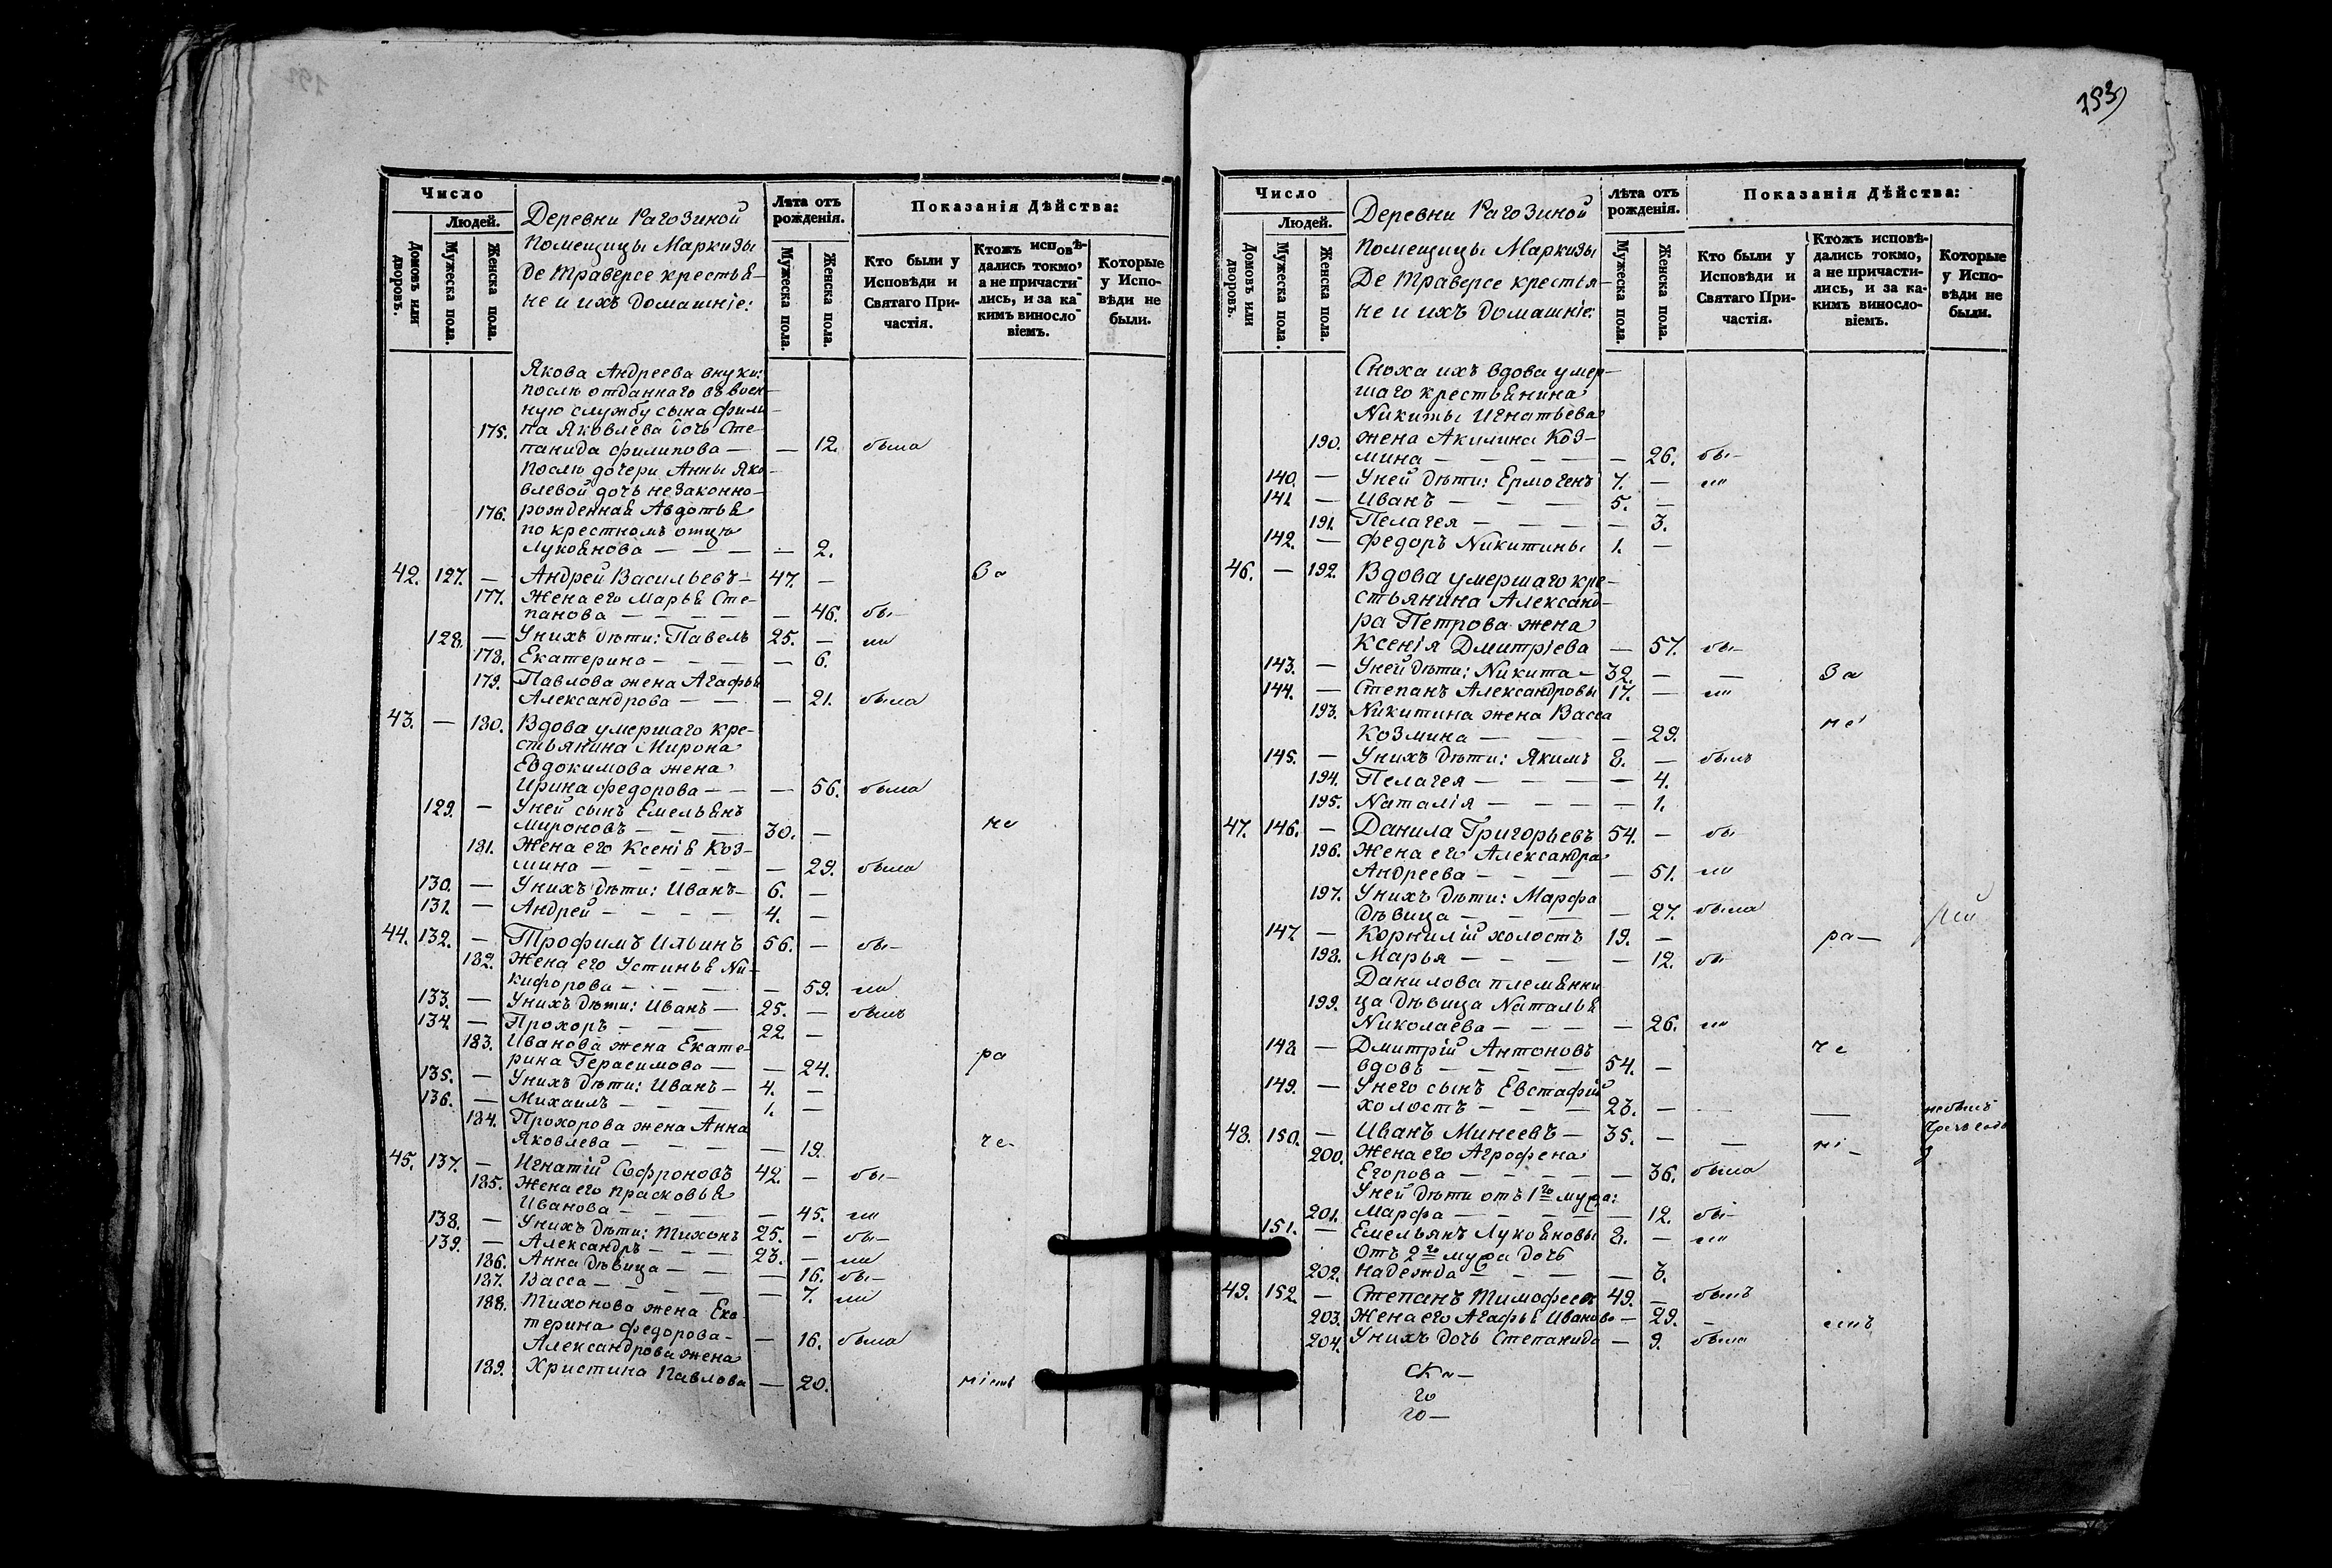 193
Число
Людей.
Домовъ или дворовъ.
Мужеска пола.
Женска пола.
Деревни Рагозиной
Помещицы Маркизы
де Траверсе крестья-
не и ихъ домашніе:
Лѣта отъ рожденія.
Мужеска пола.
Женска пола.
Показанія Дѣйства:
Кто были у Исповѣди и Святаго Причастія.
Ктожъ исповѣдались токмо, а не причастились, и за какимъ винословіемъ.
Которые у Исповѣди не были.
Якова Андреева внуки:
послѣ отданнаго въ воен-
ную службу сына Фили-
175. па Яковлева дочь Сте-
панида Филипова — — 12. была
послѣ дочери Анны Яко-
влевой дочь незаконно-
176. рожденная Авдотья
по крестномъ отцѣ
Лукоянова — — — — 2.
42. 127. — Андрей Васильевъ — 47. — За
177. Жена его Марья Сте-
панова — — — — — 46. бы-
128. — У нихъ дѣти: Павелъ 25. — ли
178. Екатерина — — — — 6.
179. Павлова жена Агафья
Александрова — — — 21. была
43. — 180. Вдова умершаго кре-
стьянина Мирона
Евдокимова жена
Ирина Федорова — — — 56. была
129. — У ней сынъ Емельянъ
Мироновъ — — — 30. — не
181. Жена его Ксенія Коз-
мина — — — — — 29. была
130. — У нихъ дѣти: Иванъ — 6. —
131. — Андрей — — — — 4. —
44. 132. — Трофимъ Ильинъ 56. — бы-
182. Жена его Устинья Ни-
кифорова — — — — 59. ли
133. — У нихъ дѣти: Иванъ — 25. — былъ
134. — Прохоръ — — — 22. —
183. Иванова жена Екате-
рина Герасимова — — 24. ра
135. — У нихъ дѣти: Иванъ — 4. —
136. — Михаилъ — — — 1. —
184. Прохорова жена Анна
Яковлева — — — — 19. че-
45. 137. — Игнатій Софроновъ 42. — бы-
185. Жена его Прасковья
Иванова — — — — 45. ли
138. — У нихъ дѣти: Тихонъ 25. — бы-
139. — Александръ — — — 23. — ли
186. Анна дѣвица — — — 16. бы-
187. Васса — — — — — 7. ли
188. Тихонова жена Ека-
терина Федорова — — 16. была
Александрова жена
189. Христина Павлова — 20. ніемъ
Число
Людей.
Домовъ или дворовъ.
Мужеска пола.
Женска пола.
Деревни Рагозиной
Помещицы Маркизы
Де Траверсе крестья-
не и ихъ домашніе:
Лѣта отъ рожденія.
Мужеска пола.
Женска пола.
Показанія Дѣйства:
Кто были у Исповѣди и Святаго Причастія.
Ктожъ исповѣдались токмо, а не причастились, и за какимъ винословіемъ.
Которые у Исповѣди не были.
Сноха ихъ вдова умер-
шаго крестьянина
Никиты Игнатьева
190. жена Акилина Коз-
мина — — — — — 26. бы-
140. — У ней дѣти: Ермогенъ 7. — ли
141. — Иванъ — — — 5. —
191. Пелагея — — — — 3.
142. — Федоръ Никитины 1. —
46. — 192. Вдова умершаго кре-
стьянина Александ-
ра Петрова жена
Ксенія Дмитріева — 57. бы-
143. — У ней дѣти: Никита — 32. — — За
144. — Степанъ Александровы 17. — ли
193. Никитина жена Васса
Козмина — — — 29. не
145. — У нихъ дѣти: Якимъ 8. — былъ
194. Пелагея — — — — 4.
195. Наталія — — — — 1.
47. 146. — Данила Григорьевъ 54. — бы
196. Жена его Александра
Андреева — — — — 51. ли
197. У нихъ дѣти: Марфа
дѣвица — — — — 27. была
147 — Корнилій холостъ 19. — ра —
198. Марья — — — — 12. бы-
Данилова племянни
199. ца дѣвица Наталья
Николаева — — — — 26. ли
148 — Дмитрій Антоновъ че
вдовъ — — — — 54. —
149. — У него сынъ Евстафій
холостъ — — — 23. — — — не былъ
48. 150. — Иванъ Минеевъ — 35. — — ні-
200. Жена его Агрофена
Егорова — — — — — 36. была
У ней дѣти отъ 1го мужа:
201. Марфа — — — — — 12. бы-
151. — Емельянъ Лукояновы 8. — ли
Отъ 2го мужа дочь
202. Надежда — — — — 3.
49. 152. — Степанъ Тимофеевъ 49. — былъ
203. Жена его Агафья Иванова — 29. — емъ
204. У нихъ дочь Степанида — 9. была
Ск —
го
го —